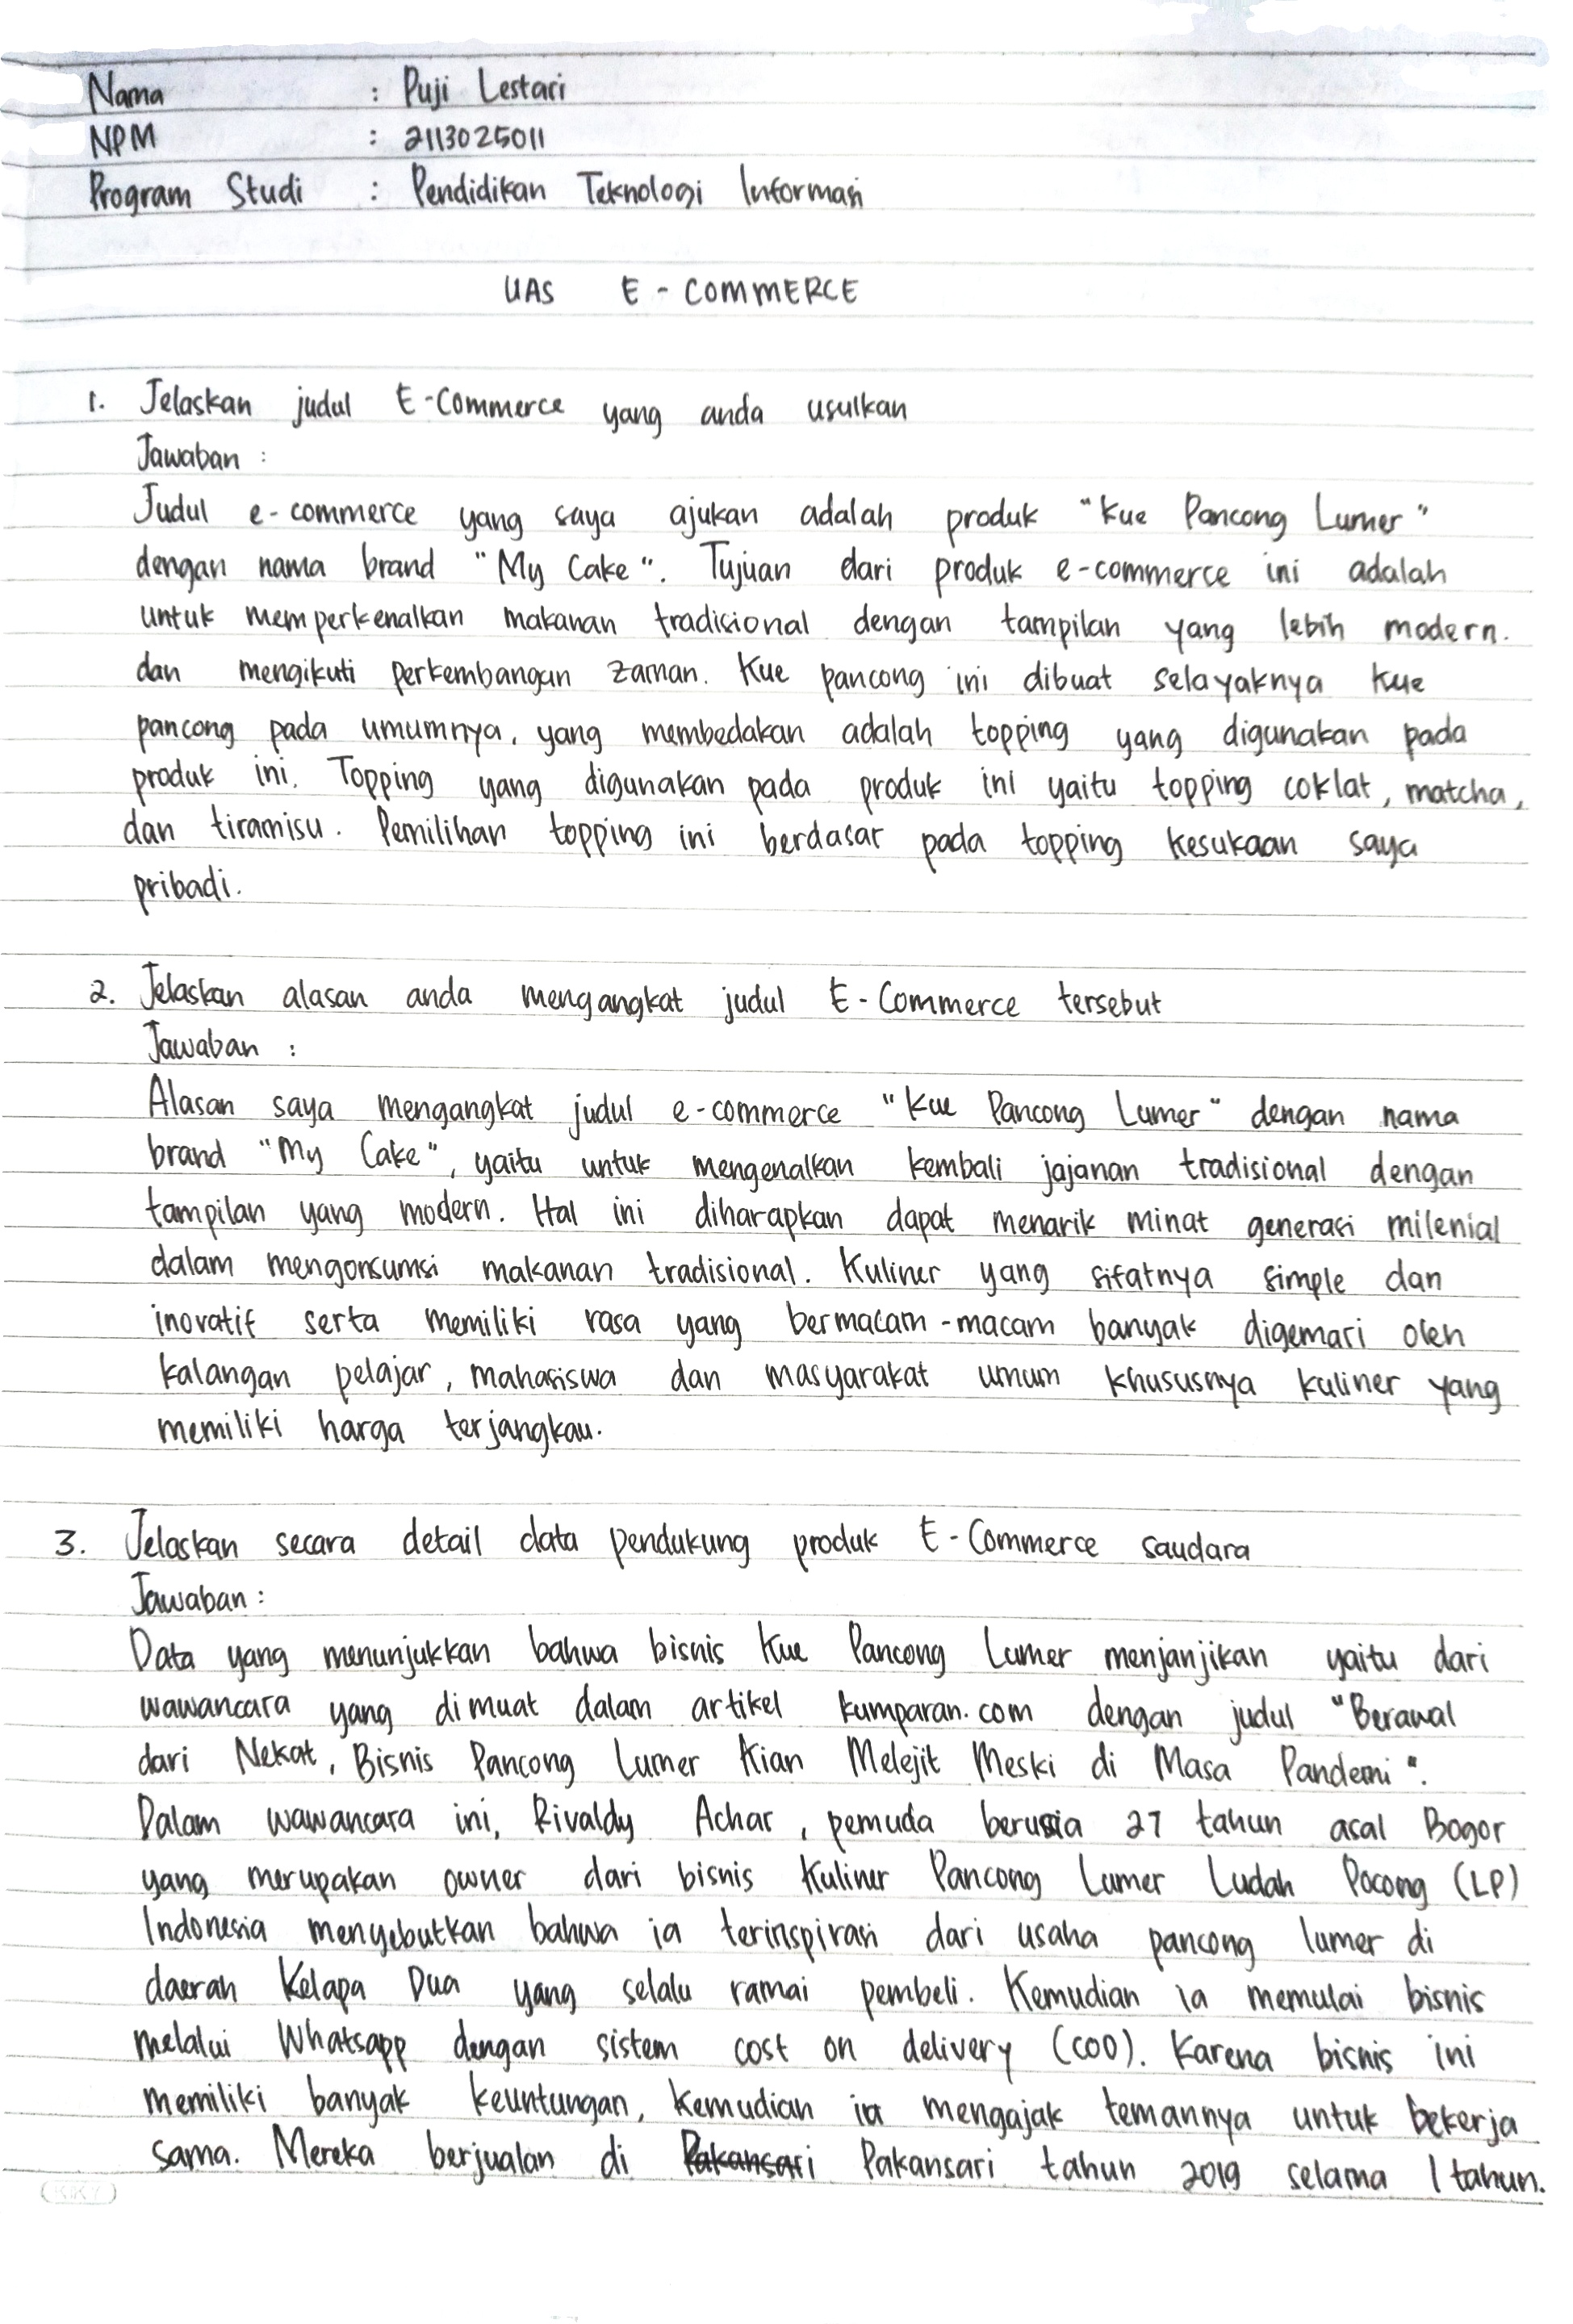 Nama : Puji Lestari
NPM : 2113025011
Program Studi : Pendidikan Teknologi Informasi
UAS E - COMMERCE
1. Jelaskan judul E-Commerce yang anda usulkan
Jawaban :
Judul e-commerce yang saya ajukan adalah produk "Kue Pancong Lumer"
dengan nama brand "My Cake". Tujuan dari produk e-commerce ini adalah
untuk memperkenalkan makanan tradisional dengan tampilan yang lebih modern.
dan mengikuti perkembangan zaman. Kue pancong ini dibuat selayaknya kue
pancong pada umumnya, yang membedakan adalah topping yang digunakan pada
produk ini. Topping yang digunakan pada produk ini yaitu topping coklat, matcha,
dan tiramisu. Pemilihan topping ini berdasar pada topping kesukaan saya
pribadi.
2. Jelaskan alasan anda mengangkat judul E-Commerce tersebut
Jawaban :
Alasan saya mengangkat judul e-commerce "Kue Pancong Lumer" dengan nama
brand "My Cake", yaitu untuk mengenalkan kembali jajanan tradisional dengan
tampilan yang modern. Hal ini diharapkan dapat menarik minat generasi milenial
dalam mengonsumsi makanan tradisional. Kuliner yang sifatnya simple dan
inovatif serta memiliki rasa yang bermacam-macam banyak digemari oleh
kalangan pelajar, mahasiswa dan masyarakat umum khususnya kuliner yang
memiliki harga terjangkau.
3. Jelaskan secara detail data pendukung produk E-Commerce saudara
Jawaban :
Data yang menunjukkan bahwa bisnis Kue Pancong Lumer menjanjikan yaitu dari
wawancara yang dimuat dalam artikel kumparan.com dengan judul "Berawal
dari Nekat, Bisnis Pancong Lumer Kian Melejit Meski di Masa Pandemi".
Dalam wawancara ini, Rivaldy Achar, pemuda berusia 27 tahun asal Bogor
yang merupakan owner dari bisnis Kuliner Pancong Lumer Ludah Pocong (LP)
Indonesia menyebutkan bahwa ia terinspirasi dari usaha pancong lumer di
daerah Kelapa Dua yang selalu ramai pembeli. Kemudian ia memulai bisnis
melalui Whatsapp dengan sistem cost on delivery (COD). Karena bisnis ini
memiliki banyak keuntungan, kemudian ia mengajak temannya untuk bekerja
sama. Mereka berjualan di Pakansari Pakansari tahun 2019 selama 1 tahun.
KIKY